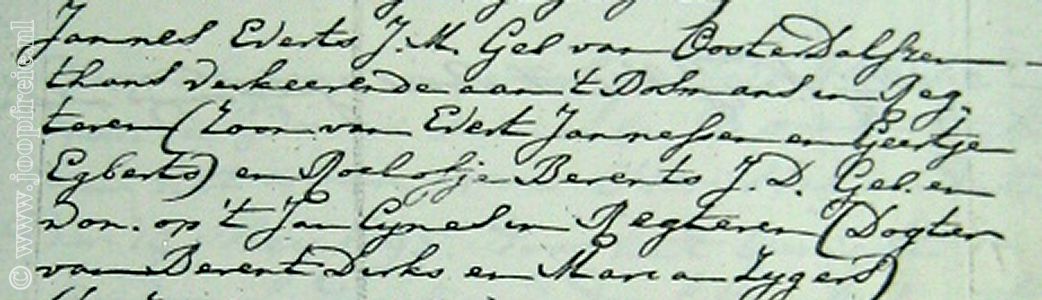 Jannes Everts J.M. Geb van Oosterdalfzen
thans verkeerende aan 't Dosmans in Reg-
teren (Zoon van Evert Jannessen en Geertje
Egberts) en Roelofje Berents J.D. Geb. en
won. op 't Jan Cynes in Regteren (Dogter
van Berent Dirks en Maria Zygers)
© www.joopfreie.nl